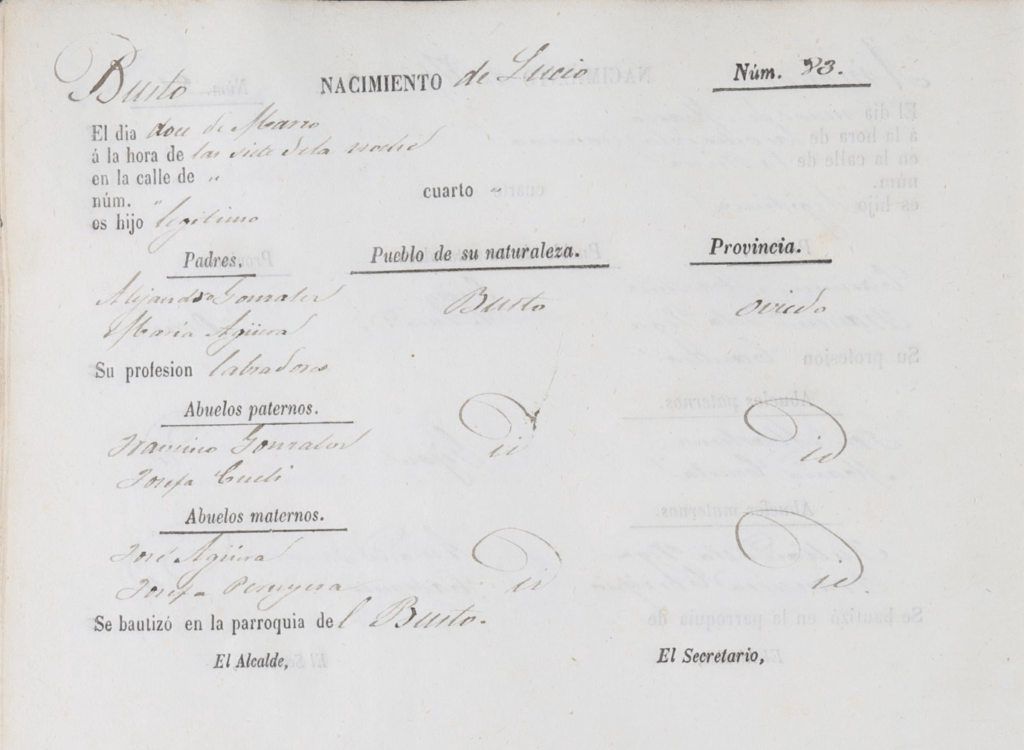 Busto NACIMIENTO de Lucio Núm. 83.
El dia doce de Marzo
á la hora de las siete de la noche
en la calle de "
núm. " cuarto "
es hijo legitimo
Padres. Pueblo de su naturaleza. Provincia.
Alejandro Gonzalez Busto Oviedo
María Agüera
Su profesion labradores
Abuelos paternos.
Francisco Gonzalez id id
Josefa Cueli
Abuelos maternos.
José Agüera
Josefa Peruyera id id.
Se bautizó en la parroquia del Busto.
El Alcalde, El Secretario,